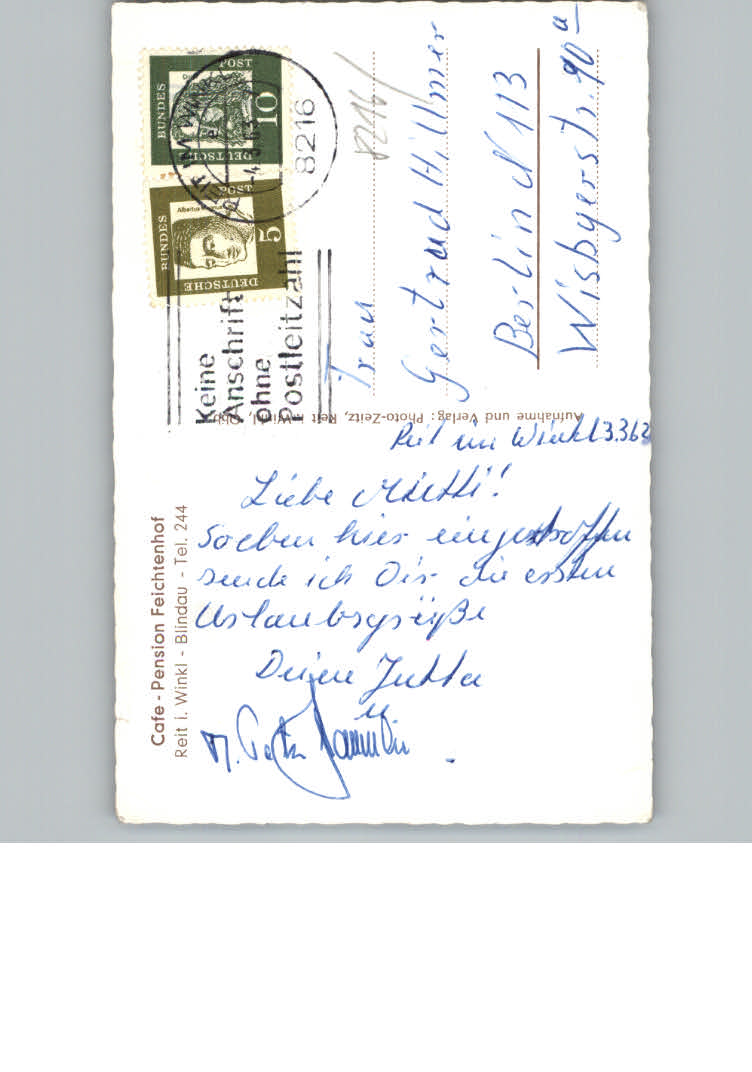 Cafe - Pension Feichtenhof
Reit i. Winkl - Blindau - Tel. 244
Reit im Winkl 3.3.63
Liebe Mutti!
Soeben hier eingetroffen
sende ich Dir die ersten
Urlaubsgrüße
Deine Jutta
u.
Aufnahme und Verlag: Photo-Zeitz, Reit i. Winkl,
DEUTSCHE
BUNDES
POST
10
DEUTSCHE
BUNDES
POST
5
REIT IM WINKL
-4.3.63
8216
Keine
Anschrift
ohne
Postleitzahl
8216
Frau
Gertrud Hillmer
Berlin N 113
Wisbyerstr. 90a